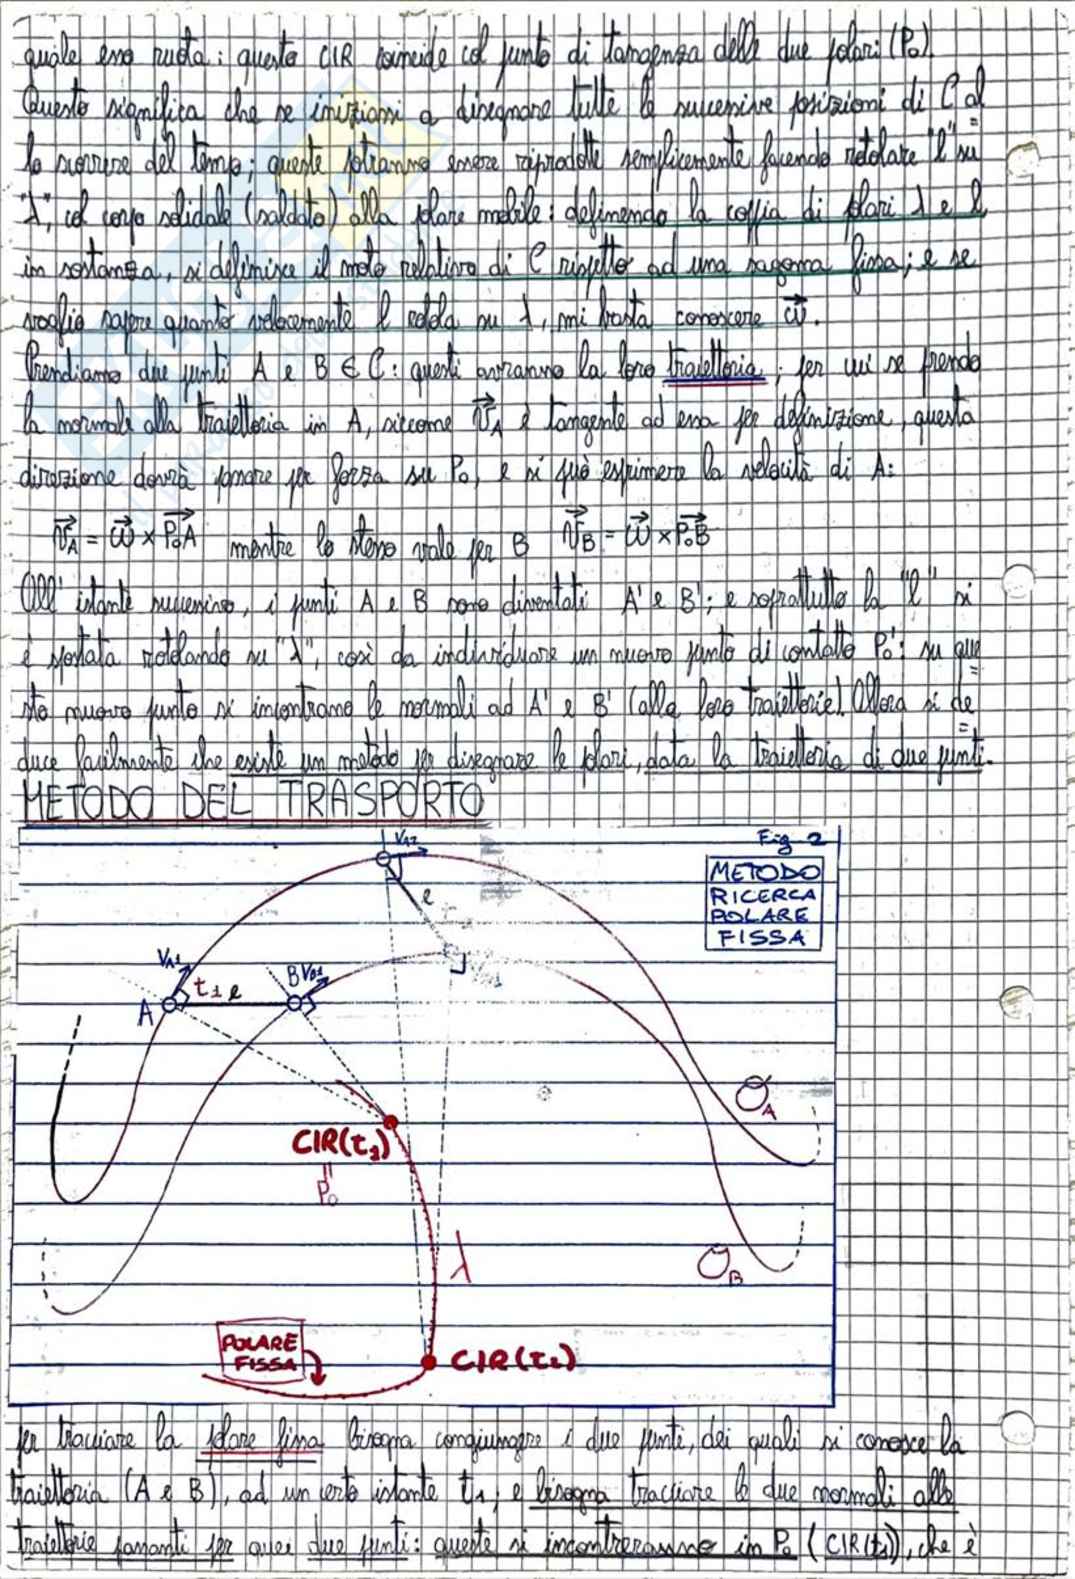 quale esso ruota: questo CIR coincide col punto di tangenza delle due polari (P₀).
Questo significa che se iniziassi a disegnare tutte le successive posizioni di C al
lo scorrere del tempo; queste potranno essere riprodotte semplicemente facendo rotolare "l" su
"λ", col corpo solidale (saldato) alla polare mobile: definendo la coppia di polari λ e l
in sostanza, si definisce il moto relativo di C rispetto ad una sagoma fissa; e se
voglio sapere quanto velocemente l rotola su λ, mi basta conoscere ω⃗.
Prendiamo due punti A e B ∈ C: questi avranno la loro traiettoria; per cui se prendo
la normale alla traiettoria in A, siccome v⃗_A è tangente ad essa per definizione, questa
direzione dovrà passare per forza su P₀, e si può esprimere la velocità di A:
v⃗_A = ω⃗ × P₀A⃗ mentre lo stesso vale per B v⃗_B = ω⃗ × P₀B⃗
All'istante successivo, i punti A e B sono diventati A' e B'; e soprattutto la "l" si
è spostata rotolando su "λ", così da individuare un nuovo punto di contatto P₀': su que
sto nuovo punto si incontrano le normali ad A' e B' (alla loro traiettorie). Allora si de
duce facilmente che esiste un metodo per disegnare le polari, data la traiettoria di due punti.
METODO DEL TRASPORTO
Fig 2
METODO
RICERCA
POLARE
FISSA
V_A2
l
V_A1
t₁ l
B V_B1
A
CIR(t₁)
P₀
λ
σ_A
σ_B
POLARE
FISSA
CIR(t₂)
per tracciare la polare fissa bisogna congiungere i due punti, dei quali si conosce la
traiettoria (A e B), ad un certo istante t₁; e bisogna tracciare le due normali alle
traiettorie passanti per quei due punti: queste si incontreranno in P₀ (CIR(t₁)), che è